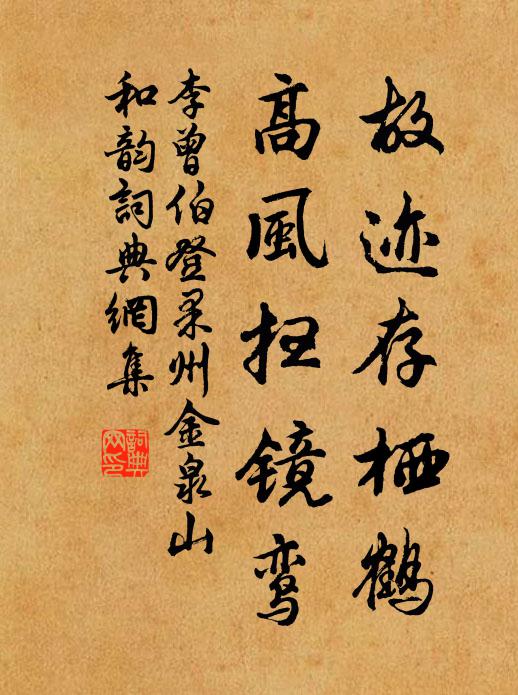 故迹存栖鹤
高風扫镜鸾
李曾伯登果州金泉山
和韵詞典網集
詞典
网印